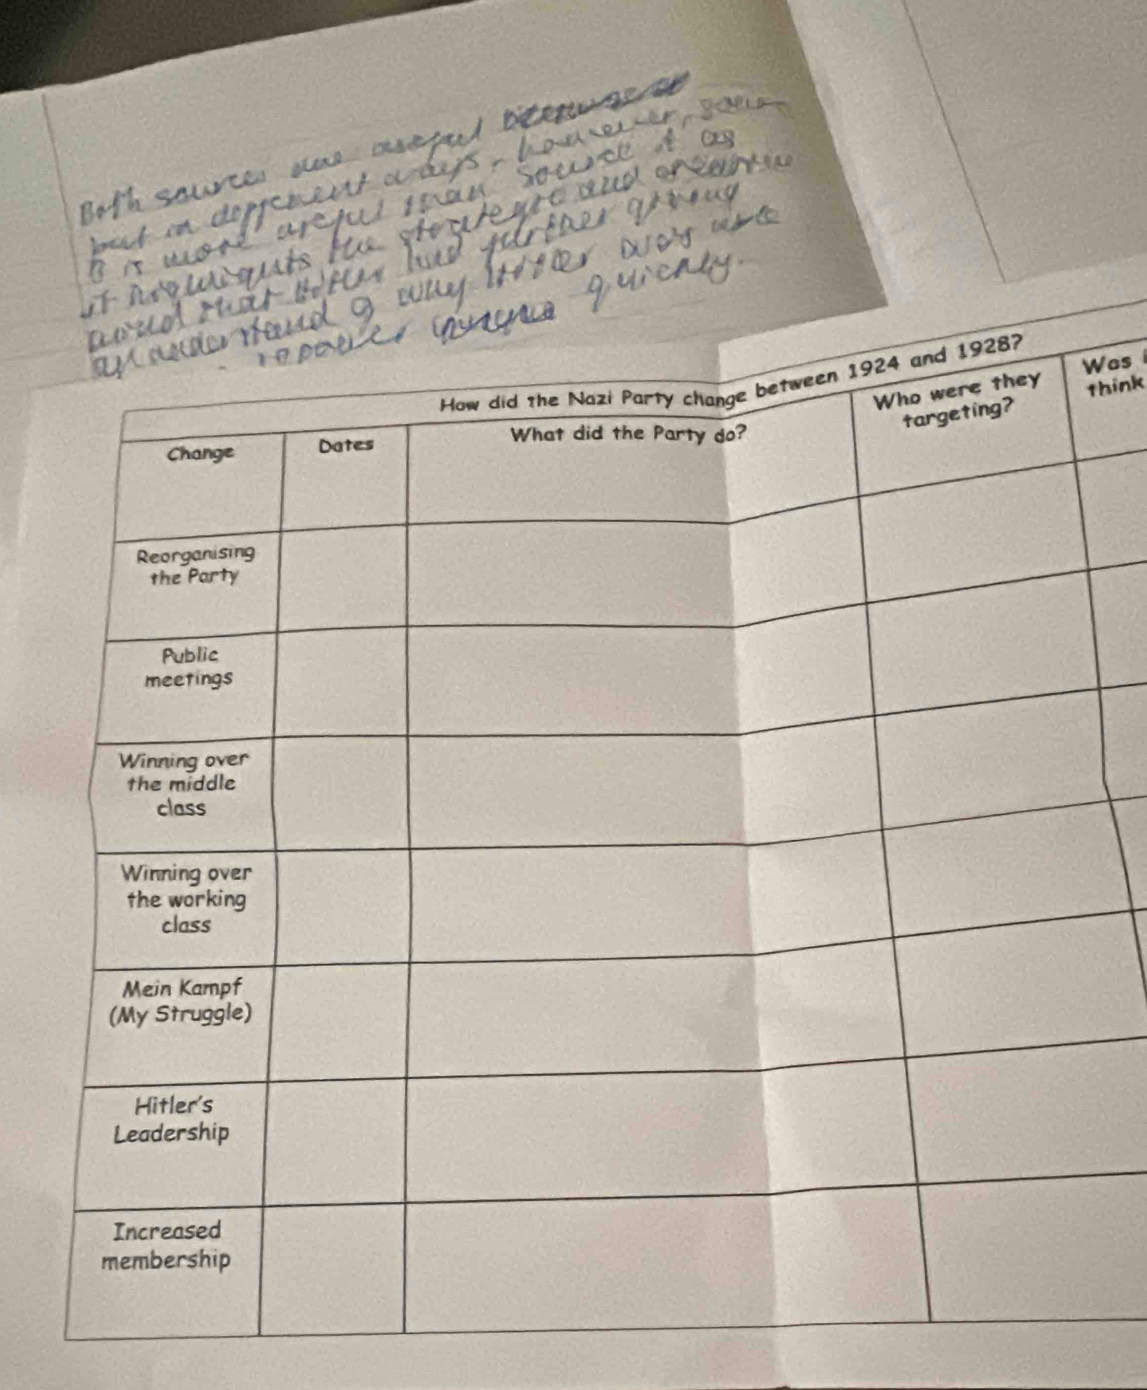 Both sources are useful
but in different ways, however,
B is more useful than source it as
it highlights the strategic and
that Hitler had further
understand why Hitler was able
quickly.
How did the Nazi Party change between 1924 and 1928?
Change Dates What did the Party do? Who were they targeting? Was
think
Reorganising
the Party
Public
meetings
Winning over
the middle
class
Winning over
the working
class
Mein Kampf
(My Struggle)
Hitler's
Leadership
Increased
membership